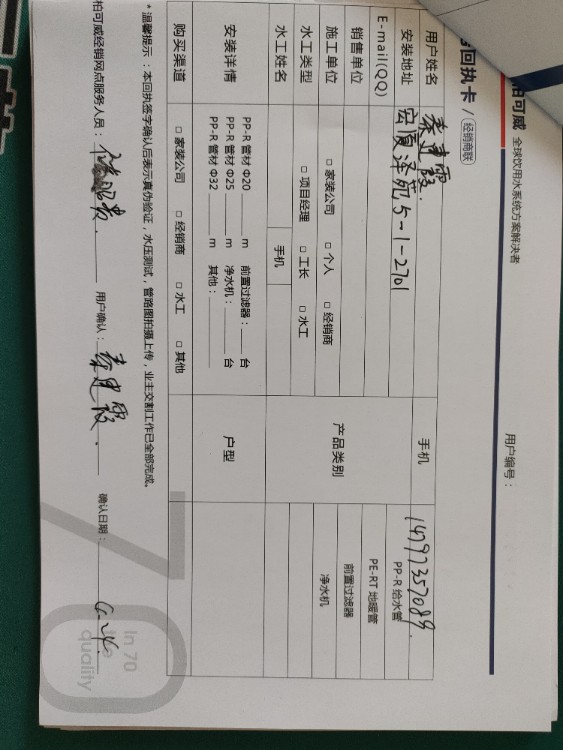 柏可威 全球饮用水系统方案解决者
回执卡 / 经销商联
用户编号：
用户姓名 秦建霞 手机 14797357089
安装地址 宏厦泽苑5-1-2701
E-mail(QQ)
销售单位
施工单位 □ 家装公司 □ 个人 □ 经销商
水工类型 □ 项目经理 □ 工长 □ 水工
水工姓名 手机
产品类别
PP-R 给水管
PE-RT 地暖管
前置过滤器
净水机
安装详情
PP-R 管材 Φ20 m 前置过滤器： 台
PP-R 管材 Φ25 m 净水机： 台
PP-R 管材 Φ32 m 其他：
户型
购买渠道 □ 家装公司 □ 经销商 □ 水工 □ 其他
* 温馨提示：本回执签字确认后表示真伪验证，水压测试，管路图拍摄上传，业主交割工作已全部完成。
柏可威经销网点服务人员： 用户确认：秦建霞. 确认日期： 6.24.
In 70
the
quality